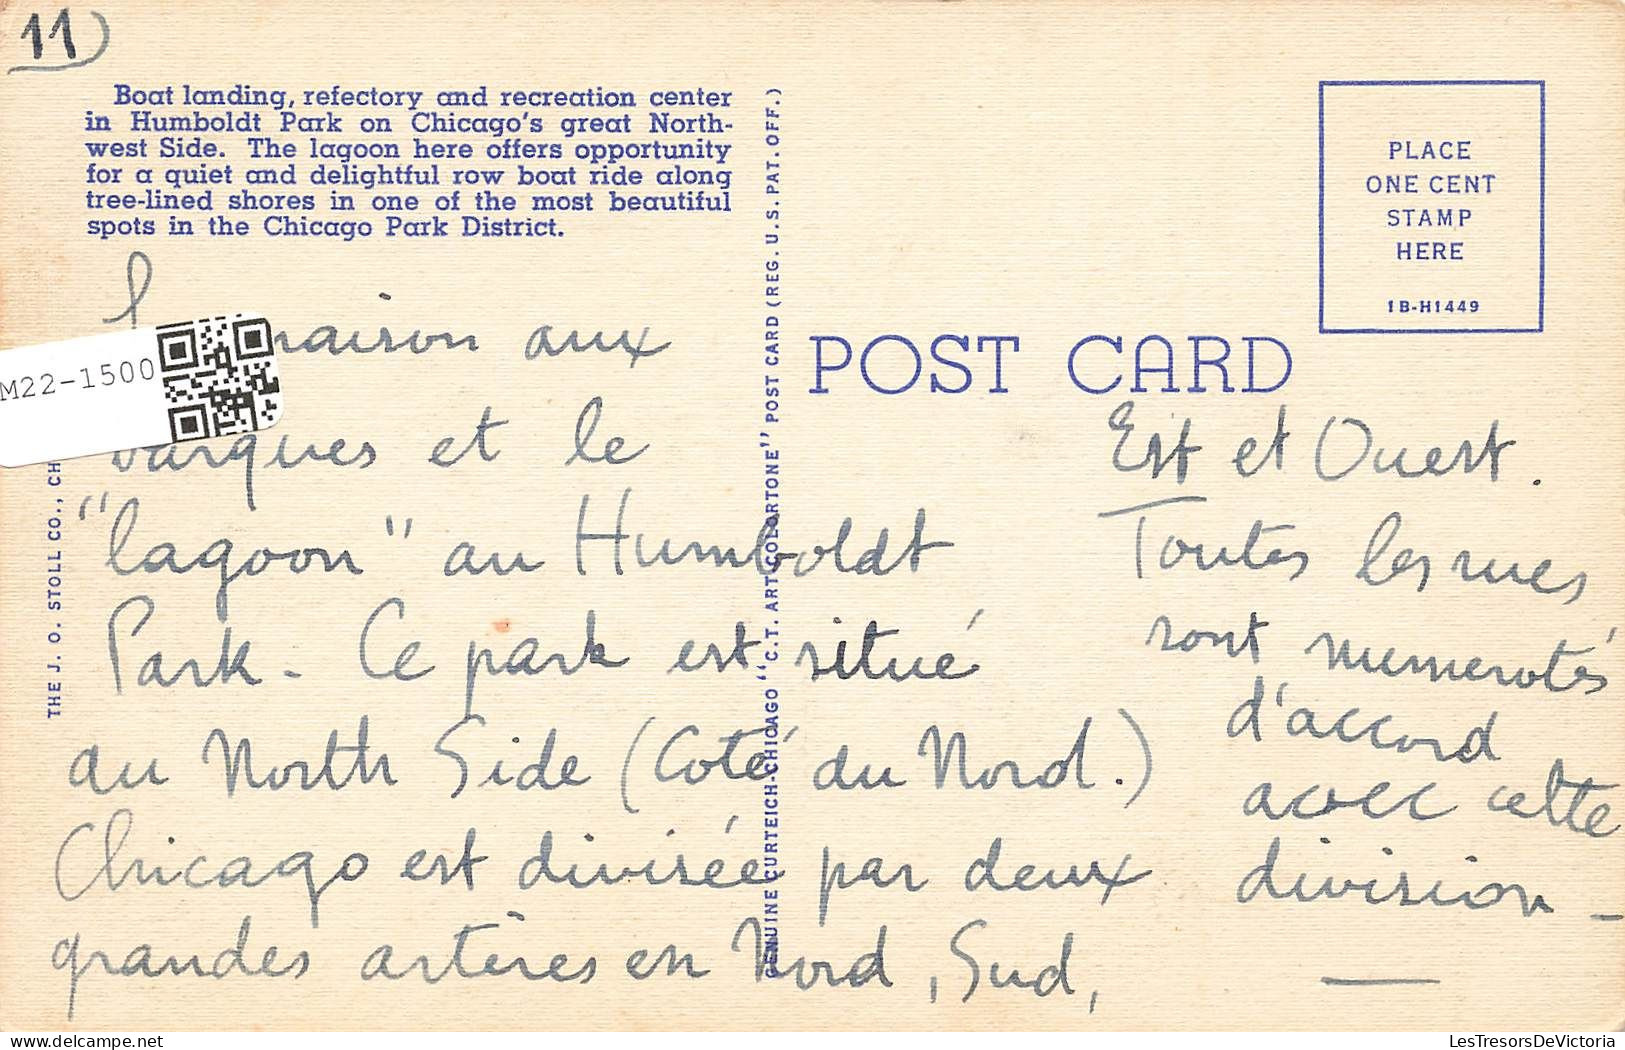 11)
Boat landing, refectory and recreation center
in Humboldt Park on Chicago's great North-
west Side. The lagoon here offers opportunity
for a quiet and delightful row boat ride along
tree-lined shores in one of the most beautiful
spots in the Chicago Park District.
PLACE
ONE CENT
STAMP
HERE
1B-H1449
POST CARD
M22-1500
THE J. O. STOLL CO., CH
GENUINE CURTEICH-CHICAGO "C.T. ART-COLORTONE" POST CARD (REG. U.S. PAT. OFF.)
maison aux
barques et le
"lagoon" au Humboldt
Park - Ce park est situé
au North Side (Coté du Nord.)
Chicago est divisée par deux
grandes artères en Nord, Sud,
Est et Ouest.
Toutes les rues
sont numerotés
d'accord
avec cette
division -
LesTresorsDeVictoria